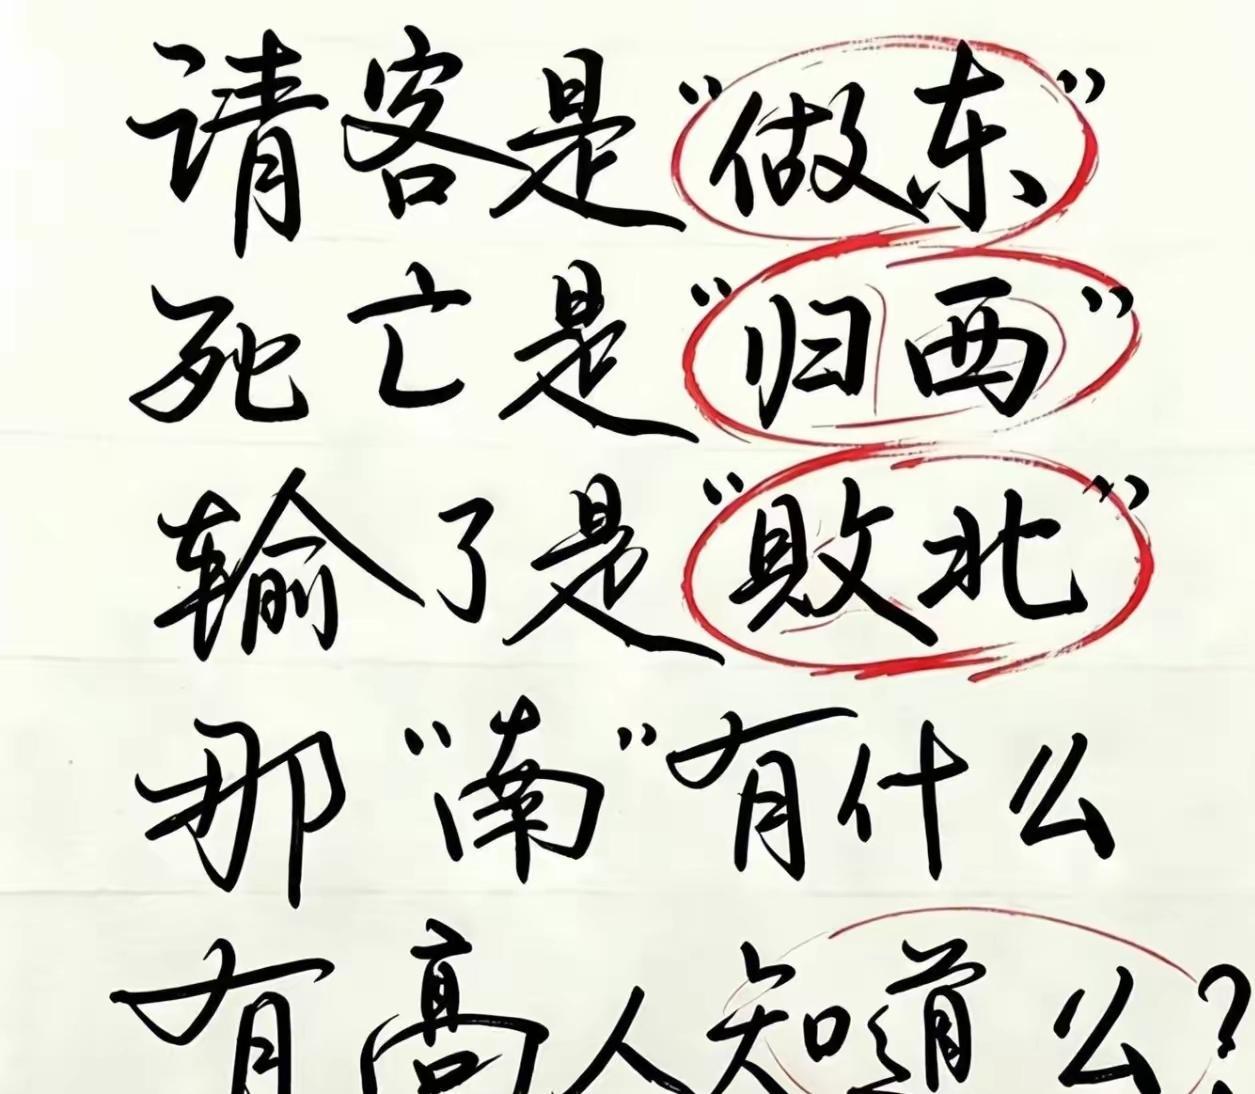 请客是“做东”
死亡是“归西”
输了是“敗北”
那“南”有什么
有高人知道么?